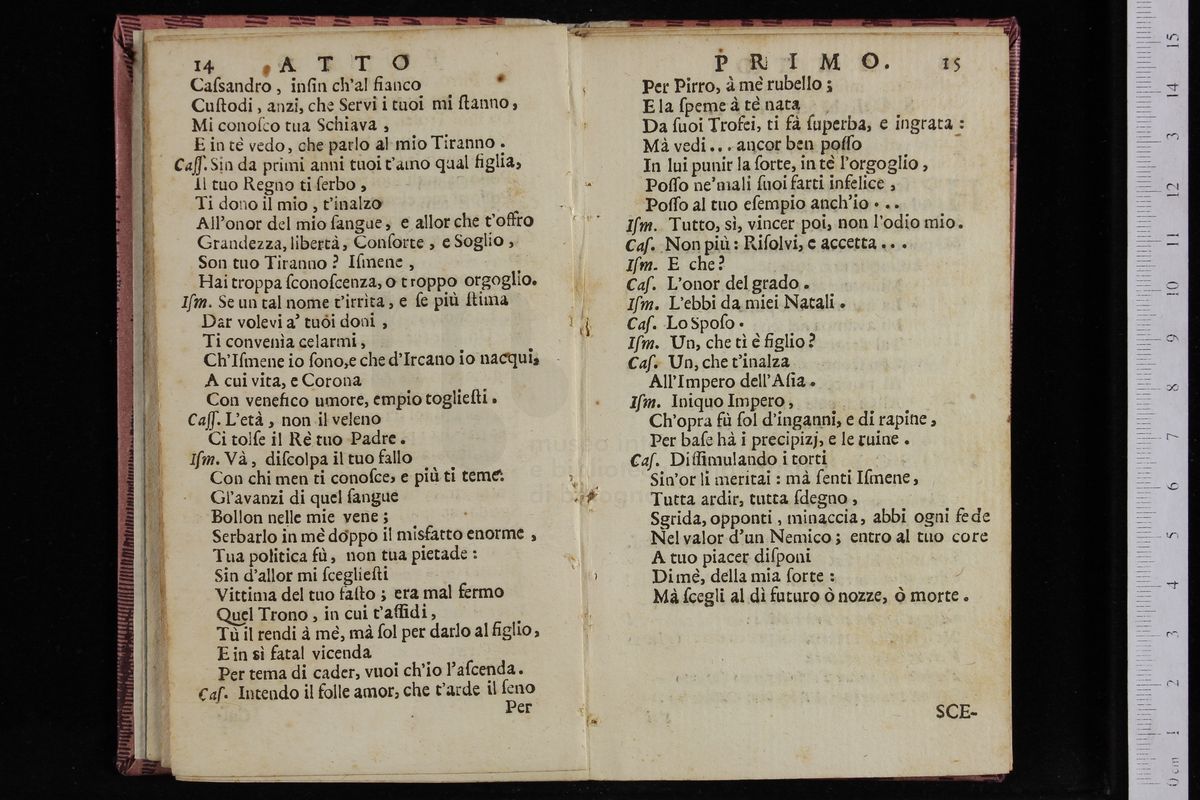 14 ATTO
Caſsandro, inſin ch'al fianco
Cuſtodi, anzi, che Servi i tuoi mi ſtanno,
Mi conoſco tua Schiava,
E in tè vedo, che parlo al mio Tiranno.
Caſſ. Sin da primi anni tuoi t'amo qual figlia,
Il tuo Regno ti ſerbo,
Ti dono il mio, t'inalzo
All'onor del mio ſangue, e allor che t'offro
Grandezza, libertà, Conſorte, e Soglio,
Son tuo Tiranno? Iſmene,
Hai troppa ſconoſcenza, o troppo orgoglio.
Iſm. Se un tal nome t'irrita, e ſe più ſtima
Dar volevi a' tuoi doni,
Ti convenìa celarmi,
Ch'Iſmene io ſono, e che d'Ircano io nacqui,
A cui vita, e Corona
Con venefico umore, empio toglieſti.
Caſſ. L'età, non il veleno
Ci tolſe il Rè tuo Padre.
Iſm. Và, diſcolpa il tuo fallo
Con chi men ti conoſce, e più ti teme.
Gl'avanzi di quel ſangue
Bollon nelle mie vene;
Serbarlo in mè doppo il misfatto enorme,
Tua politica fù, non tua pietade:
Sin d'allor mi ſceglieſti
Vittima del tuo faſto; era mal fermo
Quel Trono, in cui t'aſſidi,
Tù il rendi à mè, mà ſol per darlo al figlio,
E in sì fatal vicenda
Per tema di cader, vuoi ch'io l'aſcenda.
Caſ. Intendo il folle amor, che t'arde il ſeno
Per
PRIMO. 15
Per Pirro, à mè rubello;
E la ſpeme à tè nata
Da ſuoi Trofei, ti fà ſuperba, e ingrata:
Mà vedi... ancor ben poſſo
In lui punir la ſorte, in tè l'orgoglio,
Poſſo ne'mali ſuoi farti infelice,
Poſſo al tuo eſempio anch'io...
Iſm. Tutto, sì, vincer poi, non l'odio mio.
Caſ. Non più: Riſolvi, e accetta...
Iſm. E che?
Caſ. L'onor del grado.
Iſm. L'ebbi da miei Natali.
Caſ. Lo Spoſo.
Iſm. Un, che tì è figlio?
Caſ. Un, che t'inalza
All'Impero dell'Aſia.
Iſm. Iniquo Impero,
Ch'opra fù ſol d'inganni, e di rapine,
Per baſe hà i precipizj, e le ruine.
Caſ. Diſſimulando i torti
Sin'or li meritai: mà ſenti Iſmene,
Tutta ardir, tutta ſdegno,
Sgrida, opponti, minaccia, abbi ogni fede
Nel valor d'un Nemico; entro al tuo core
A tuo piacer diſponi
Di mè, della mia ſorte:
Mà ſcegli al dì futuro ò nozze, ò morte.
SCE-